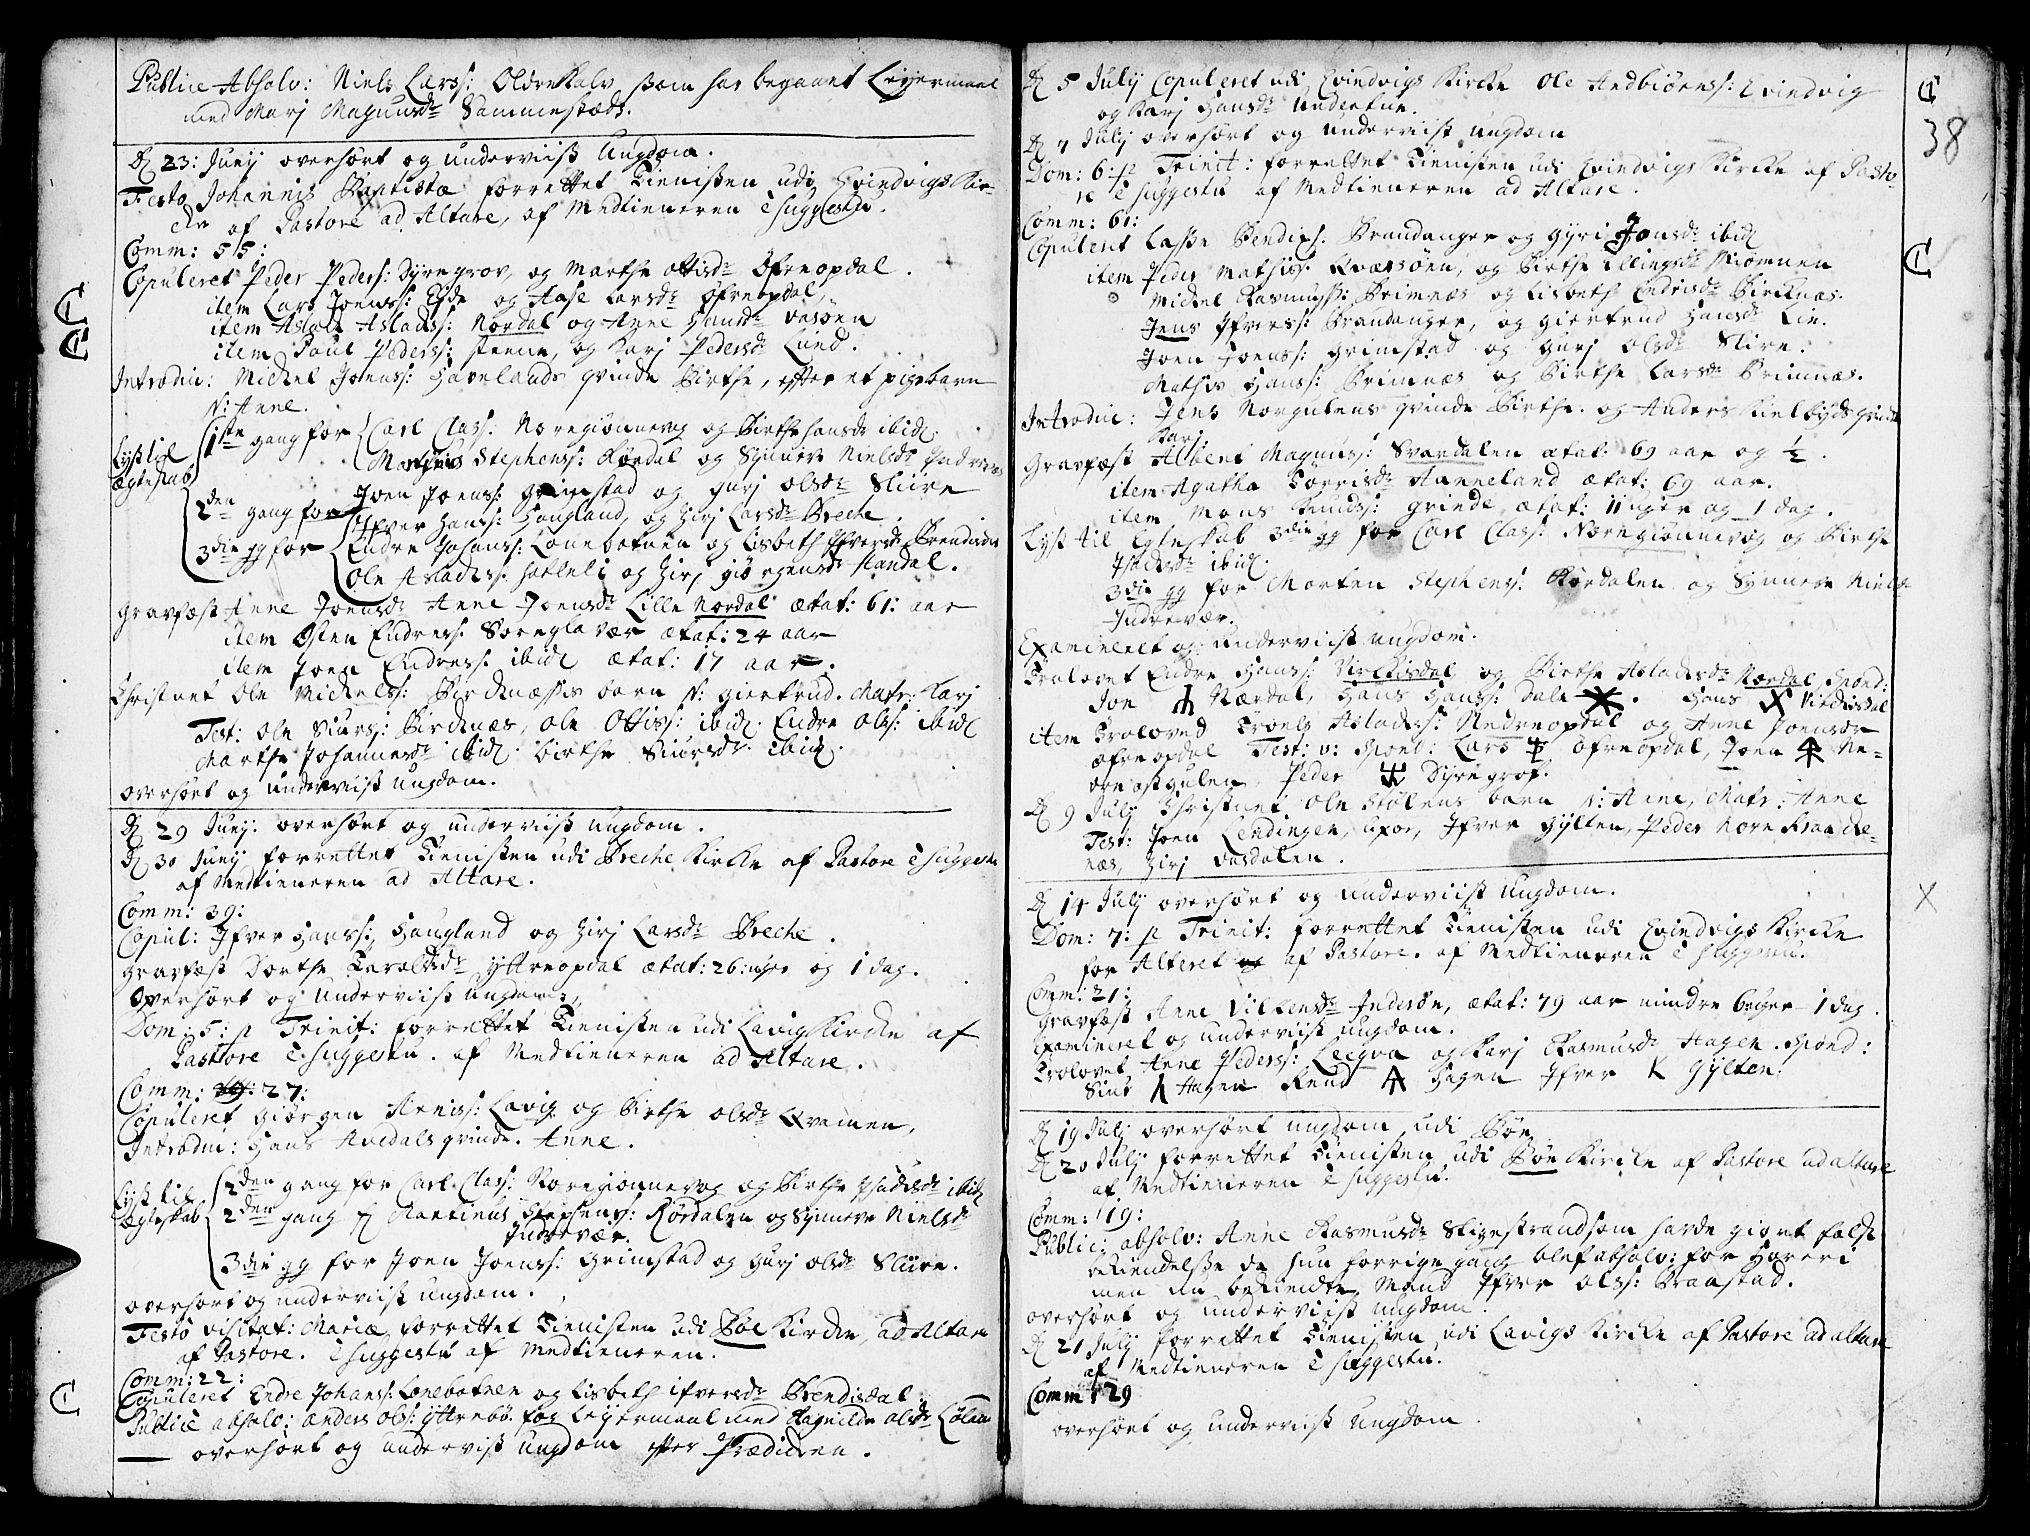 Publice Absolv: Niels Larss: Oldreskalv som har begaaet Leyermaal
med Marj Magnusdr Sammestæds.
D 23: Junij overhørt og underviist Ungdom.
Festo Johannis Baptistæ forrettet Tienisten udj Evindvigs Kir-
che af Pastore ad Altare, af Medtieneren è suggestu.
Comm: 55:
Copuleret Peder Peders: Dyregrov, og Marthe Ottisdr Øfreopdal.
item Lars Joenss: Eyde og Aase Larsdr Øfreopdal,
item Aslak Aslaks: Nordal og Anne Hansdr
item Poul Peders: steene, og Karj Pedersdr Lund.
Introduc: Michel Joenss: Havelands qvinde Birthe, efter et pigebarn
N: Anne.
Lyst til Ægteskab
1ste gang for Carl Class: Noregiønnevog og Birthe Hansdr ibid.
Martinus Stephenss: Rørdal og Synneve Nielsdr Indrevær
2den gang for Joen Joenss: Grimstad og Gurj Olsdr Sliire
Ifver Hanss: Haugland, og Zirj Larsdr Breche
3die gg for Endre Johanss: Lonebotnen og Lisbeth Ifversdr Brendisdal
Ole Aslakss: Hatleli og Zirj Giørgensdr Aandal.
Gravfæst Anne Joensdr Anne Joensdr Lille Nordal ætat: 61: aar
item Østen Endress: Sørreglavær ætat: 24 aar
item Joen Endress: ibid ætat: 17 aar.
Christnet Ole Michelss: Birchnæssis barn N: Giertrud. Matr: Karj
Test: Ole Siurs: Birchnæs, Ole Ottiss: ibid. Endre Ols: ibid
Marthe Johannesdr ibid. Birthe Siursdr ibid.
overhørt og underviist ungdom.
D 29 Junij: overhørt og underviist ungdom.
D 30 Junij forrettet Tienisten udi Breche Kirke af Pastore è suggestu
af Medtieneren ad Altare.
Comm: 39:
Copul: Ifver Hanss: Haugland og Zirj Larsdr Breche.
Gravfæst Dorthe Haralsdr Yttreopdal ætat: 26: uger og 1 dag.
Overhørt og underviist ungdom.
Dom: 5: p Trinit: forrettet Tienisten udi Lavigs Kirche af
Pastore è suggestu. af Medtieneren ad Altare.
Comm: 27:
Copuleret Giørgen Arniss: Lavig og Birthe Olsdr Qvamen,
Introduc: Hans Avedals qvinde. Anne.
Lyst til Ægteskab
2den gang for Carl Clas: Noregiønnevog og Birthe Isachsdr ibid
2den gang for Martinus Stephens: Rørdalen og Synneve Nielsdr
Indrevær.
3die gg for Joen Joenss: Grimstad og Gurj Olsdr Sliire.
overhørt og underviist ungdom.
Festo visitat: Mariæ forrettet Tienisten udi Bøe Kirche ad Altare
af Pastore. è suggestu af Medtieneren.
Comm: 22:
Copuleret Endre Johanss: Lonebotnen og Lisbeth Ifversdr Brendisdal
Publicè absolv: Anders Ols: Yttrebø. for Leyermaal med Ragnilde Olsdr
overhørt og underviist ungdom efter Prædichen.
38
D 5 Julij Copuleret udi Evindvigs Kirche Ole Andbiørnss: Evindvig
og Karj Hansdr
D 7 Julij overhørt og underviist ungdom
Dom: 6: p Trinit: forrettet Tienisten udi Evindvigs Kirche af Pasto-
re è suggestu af Medtieneren ad Altare.
Comm: 61:
Copuleret Lasse Bendixs. Brandanger og Gyri Jonsdr ibid
item Peder Mathiss. Qværsøen, og Birthe Ellingsdr Miømnen
Michel Rasmuss: Brimnæs og Lisbeth Endrisdr Birchnæs.
Jens Ifverss: Brandanger, og Giertrud Hansdr Lie.
Joen Joenss: Grimstad og Gurj Olsdr Slire.
Mathis Hanss: Brimnæs og Birthe Larsdr Brimnæs.
Introduc: Jens Norgulens qvinde Birthe. og Anders qvinde
Karj.
Gravfæst Albert Magnuss: Svardalen ætat: 69 aar og ½.
item Agatha Torrisdr Hanneland ætat: 69 aar.
item Mons Knuds: Grinde, ætat: 11 uger og 1 dag.
Lyst til Egteskab 3die gg for Carl Clas: Noregiønnevog og Birthe
Isachsdr ibid.
3die gg for Morten Stephens: Rørdalen og Synneve Niels
Indrevær.
Examineret og underviist ungdom.
Trolovet Endre Hanss: og Birthe Aslaksdr Nordal Spond:
Jon Nærdal, Hans Hanss: Dale. Hans
item Troloved Troels Aslakss: Nedreopdal og Anne Joensdr
øfreopdal Test: v: Spond: Lars øfreopdal, Joen Ne-
dre Peder Dyregrof.
D 9 Julij Christnet Ole Stølens barn N: Anne, Matr: Anne
Test: Joen Lendingen, uxor, Ifver Gylten, Peder Nore
næs, Zirj
D 14 Julij overhørt og underviist ungdom.
Dom: 7: p Trinit: forrettet Tienisten udi Evindvigs Kirche
for Alteret af Pastore. af Medtieneren è suggestu.
Comm: 21:
Gravfæst Anne Vilkensdr Indersøe, ætat: 79 aar mindre 6 uger 1 dag.
Examineret og underviist ungdom.
Trolovet Arne Pederss: Leegva og Karj Rasmusdr Hagen. Spond:
Siur Hagen Knud Hagen Ifver Gylten.
D 19 Julij overhørt ungdom udi Bøe
D 20 Julij forrettet Tienisten udi Bøe Kirche af Pastore ad altare
af Medtieneren è suggestu.
Comm: 19:
Public: absolv: Anne Rasmusdr Skigestrand som hafde giort falsk
bekiendelsse da hun forrige gang blef absolv: for Horeri
men nu bekiendte Mand Ifver Olss: Braastad.
overhørt og underviist ungdom.
D 21 Julij forrettet Tienisten udi Lavigs Kirche af Pastore ad altare
af Medtieneren è suggestu.
Comm: 29
overhørt og underviist ungdom.